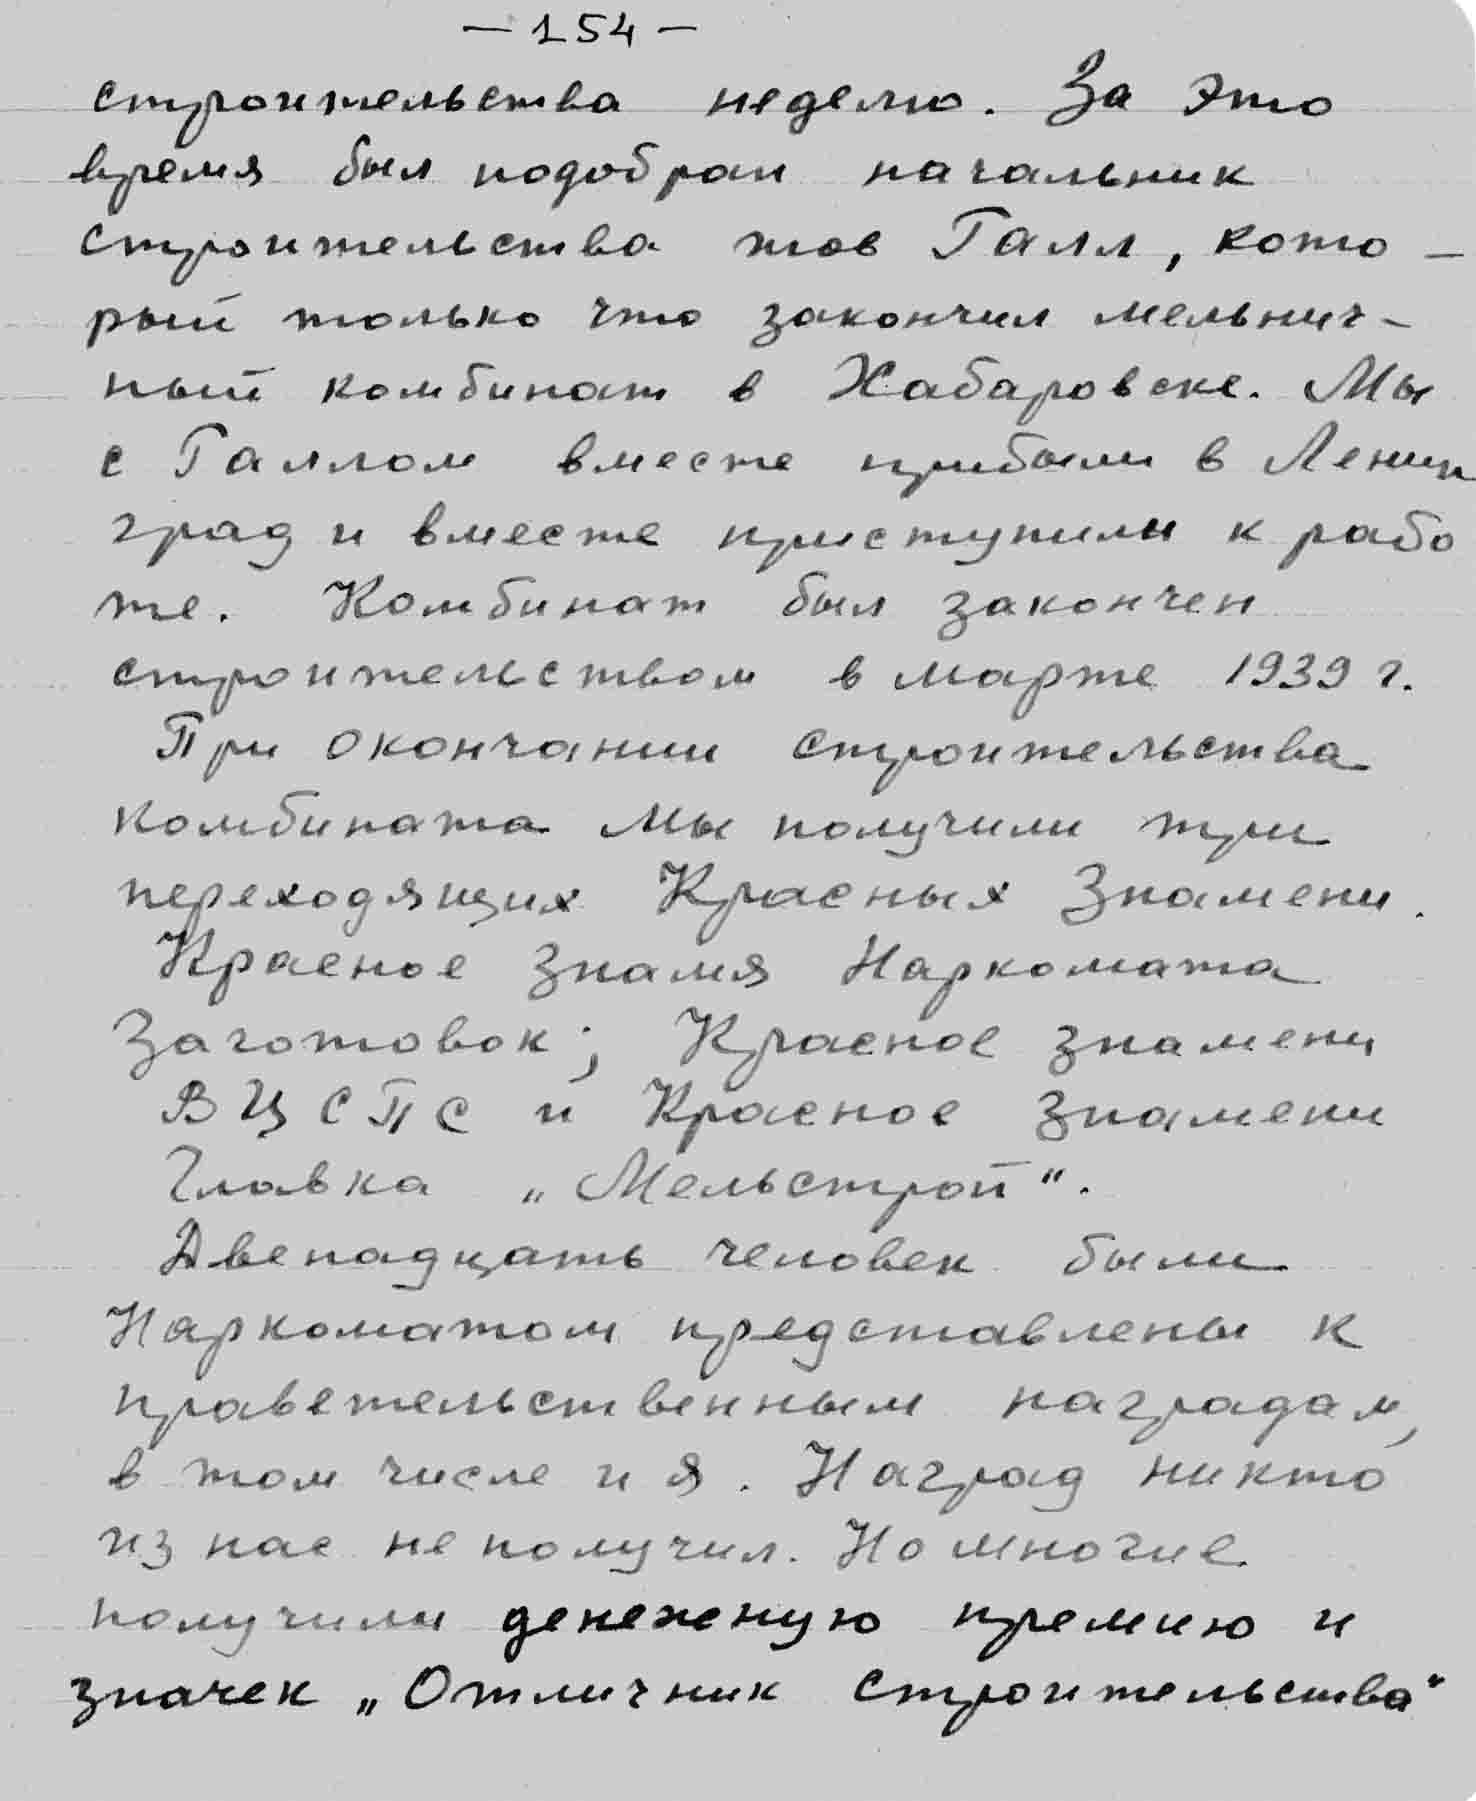 — 154 —
строительства неделю. За это
время был подобран начальник
строительства тов Галл, кото –
рый только что закончил мельнич –
ный комбинат в Хабаровске. Мы
с Галлом вместе прибыли в Ленин
град и вместе приступили к рабо
те. Комбинат был закончен
строительством в марте 1939 г.
При окончании строительства
комбината мы получили три
переходящих Красных Знамени.
Красное Знамя Наркомата
Заготовок; Красное знамени
ВЦСПС и Красное Знамени
Главка „Мельстрой“.
Двенадцать человек были
Наркоматом представлены к
праветельственным наградам,
в том числе и я. Наград никто
из нас не получил. Но многие
получили денежную премию и
значек „Отличник строительства“